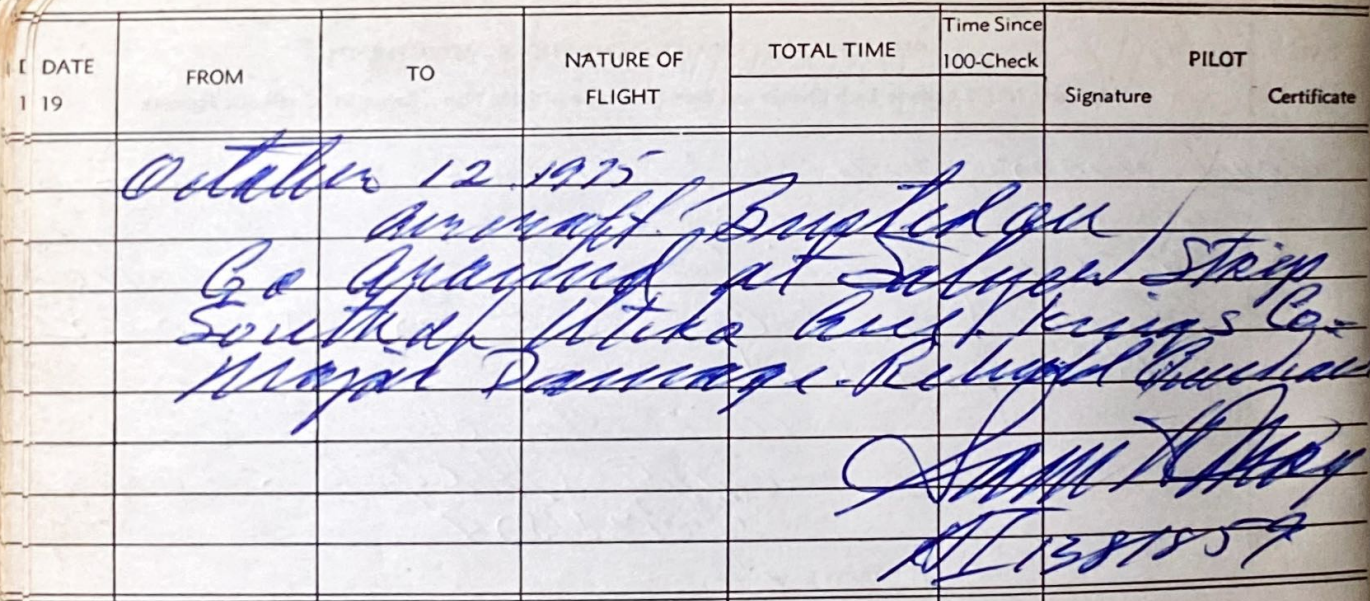 DATE FROM TO NATURE OF FLIGHT TOTAL TIME Time Since 100-Check PILOT
19 Signature Certificate
October 12 1975
aircraft. on
Go Around at Salyer Strip
South of Utika Ave. Kings Co-
Major Damage. Rebuild
Sam
AI 1387859